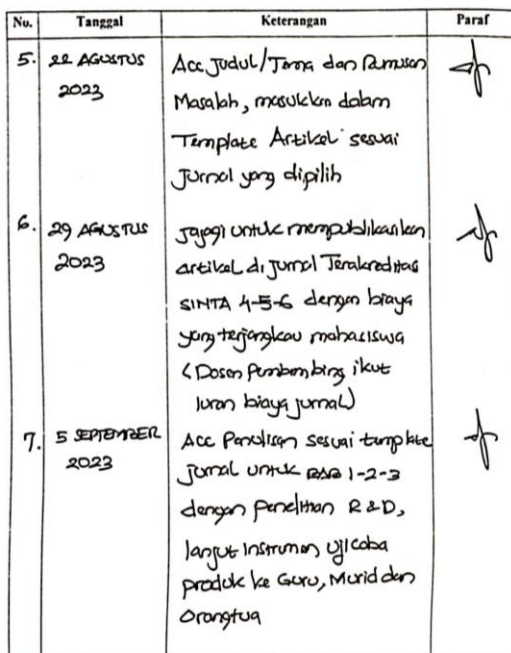 No. Tanggal Keterangan Paraf
5. 22 AGUSTUS 2023
Acc Judul/Tema dan Rumusan
Masalah, masukkan dalam
Template Artikel sesuai
Jurnal yang dipilih
6. 29 AGUSTUS 2023
Jajagi untuk mempublikasikan
artikel di Jurnal Terakreditas
SINTA 4-5-6 dengan biaya
yang terjangkau mahasiswa
(Dosen Pembimbing ikut
Iuran biaya jurnal)
7. 5 SEPTEMBER 2023
Acc Penulisan sesuai template
jurnal untuk BAB 1-2-3
dengan penelitian R&D,
lanjut Instrumen Ujicoba
produk ke Guru, Murid dan
Orangtua